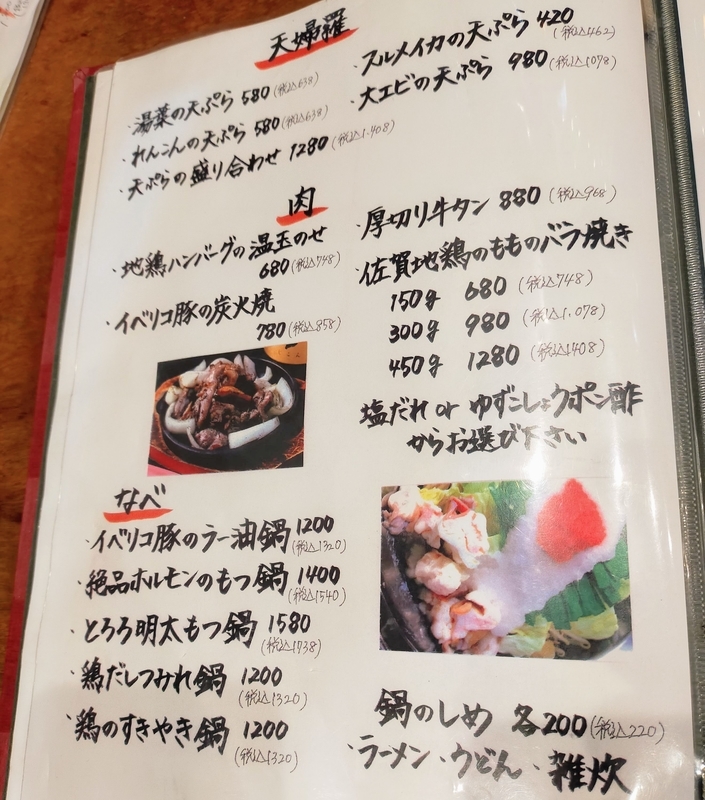 天婦羅
・湯葉の天ぷら 580 (税込638)
・れんこんの天ぷら 580 (税込638)
・天ぷらの盛り合わせ 1280 (税込1.408)
・スルメイカの天ぷら 420
(税込462)
・大エビの天ぷら 980 (税込1078)
肉
・地鶏ハンバーグの温玉のせ
680 (税込748)
・イベリコ豚の炭火焼
780 (税込858)
・厚切り牛タン 880 (税込968)
・佐賀地鶏のもものバラ焼き
150g 680 (税込748)
300g 980 (税込1.078)
450g 1280 (税込1408)
塩だれ or ゆずこしょうポン酢
からお選び下さい
なべ
・イベリコ豚のラー油鍋 1200
(税込1320)
・絶品ホルモンのもつ鍋 1400
(税込1540)
・とろろ明太もつ鍋 1580
(税込1738)
・鶏だしつみれ鍋 1200
(税込1320)
・鶏のすきやき鍋 1200
(税込1320)
鍋のしめ 各200 (税込220)
・ラーメン・うどん・雑炊